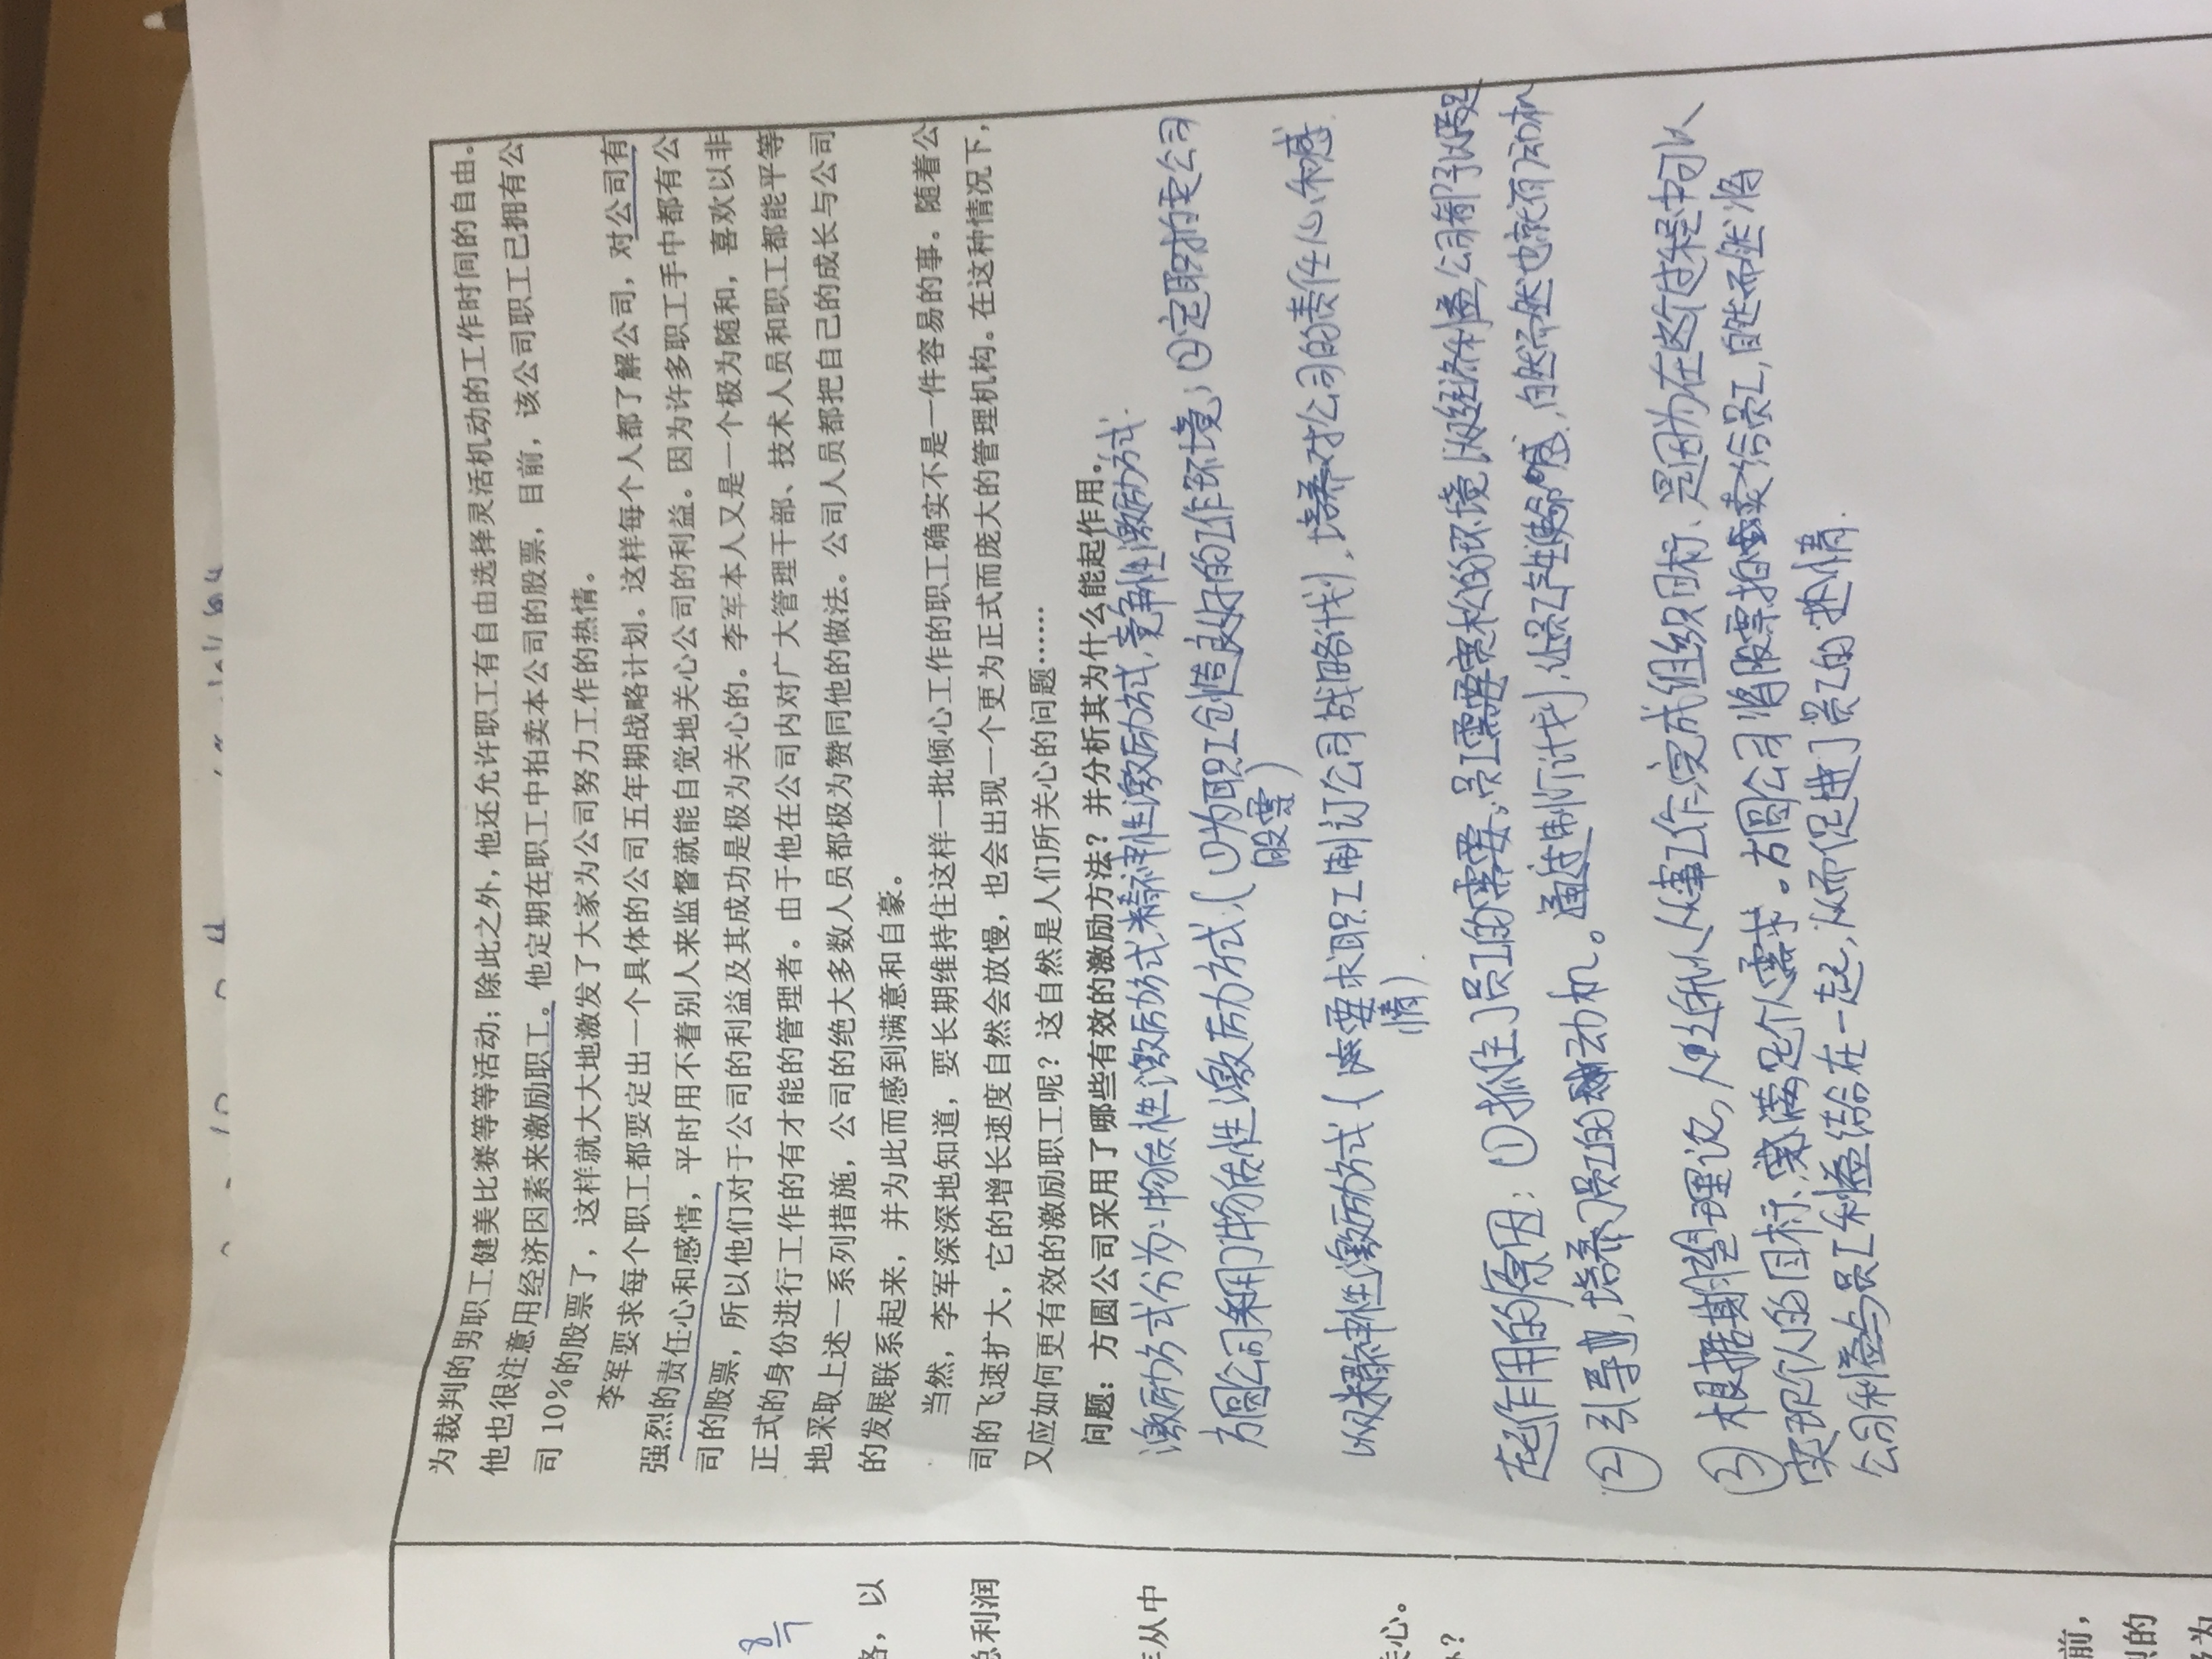 8
7
略，以
总利润
年从中
关心。
办？
前，
烈的
极为
为裁判的男职工健美比赛等等活动；除此之外，他还允许职工有自由选择灵活机动的工作时间的自由。
他也很注意用经济因素来激励职工。他定期在职工中拍卖本公司的股票，目前，该公司职工已拥有公
司10%的股票了，这样就大大地激发了大家为公司努力工作的热情。
李军要求每个职工都要定出一个具体的公司五年期战略计划。这样每个人都了解公司，对公司有
强烈的责任心和感情，平时用不着别人来监督就能自觉地关心公司的利益。因为许多职工手中都有公
司的股票，所以他们对于公司的利益及其成功是极为关心的。李军本人又是一个极为随和，喜欢以非
正式的身份进行工作的有才能的管理者。由于他在公司内对广大管理干部、技术人员和职工都能平等
地采取上述一系列措施，公司的绝大多数人员都极为赞同他的做法。公司人员都把自己的成长与公司
的发展联系起来，并为此而感到满意和自豪。
当然，李军深深地知道，要长期维持住这样一批倾心工作的职工确实不是一件容易的事。随着公
司的飞速扩大，它的增长速度自然会放慢，也会出现一个更为正式而庞大的管理机构。在这种情况下，
又应如何更有效的激励职工呢？这自然是人们所关心的问题……
问题：方圆公司采用了哪些有效的激励方法？并分析其为什么能起作用。
激励方式分为：物质性激励方式，精神性激励方式，竞争性激励方式.
方圆公司利用了物质性激励方式，(①为职工创造良好的工作环境；②定职拍卖公司
股票)
以及精神性激励方式(要求职工制订公司战略计划，培养对公司的责任心和感
情).
起作用的原因：①抓住了员工的需要。员工需要宽松的环境以及经济利益，公司都予以满足
②引导，培养了员工的动机。通过制订计划，让员工产生使命感，自然而然也就有了动机
③根据期望理论，人之所以从事工作，完成组织目标、是因为在这个过程中可以
实现个人的目标，满足个人需求。方圆公司将股票拍卖给员工，自然而然将
公司利益与员工利益结合在一起，从而促进了员工的热情.